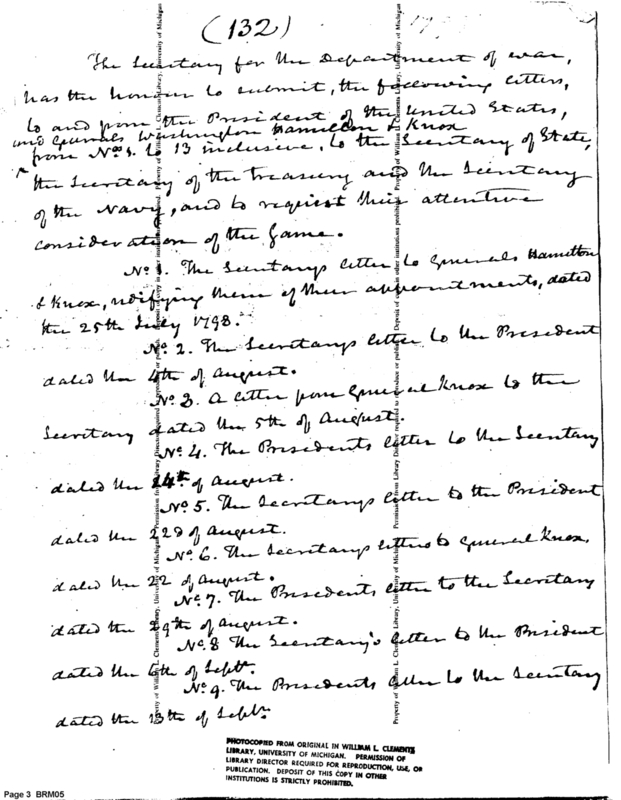 (132)
179
The Secretary for the Department of war,
has the honour to submit, the following letters,
to and from the President of the United States,
and Generals Washington Hamilton & Knox
from Nos. 1. to 13 inclusive, to the Secretary of State,
the Secretary of the treasury and the Secretary
of the Navy, and to request their attentive
consideration of the same.
No 1. The Secretarys letter to Generals Hamilton
& Knox, notifying them of their appointments, dated
the 25th July 1798.
No. 2. The Secretarys letter to the President
dated the 4th of August.
No 3. A letter from General Knox to the
Secretary dated the 5th of August.
No 4. The Presidents letter to the Secretary
dated the 14th of August.
No 5. The Secretarys letter to the President
dated the 22d of August.
No 6. The Secretarys letter to General Knox,
dated the 22 of August.
No 7. The Presidents letter to the Secretary
dated the 29th of August.
No 8 The Secretary's letter to the President
dated the 6th of Septr.
No 9. The Presidents letter to the Secretary
dated the 13th of Septr.
PHOTOCOPIED FROM ORIGINAL IN WILLIAM L. CLEMENTS
LIBRARY, UNIVERSITY OF MICHIGAN. PERMISSION OF
LIBRARY DIRECTOR REQUIRED FOR REPRODUCTION, USE, OR
PUBLICATION. DEPOSIT OF THIS COPY IN OTHER
INSTITUTIONS IS STRICTLY PROHIBITED.
Page 3 BRM05